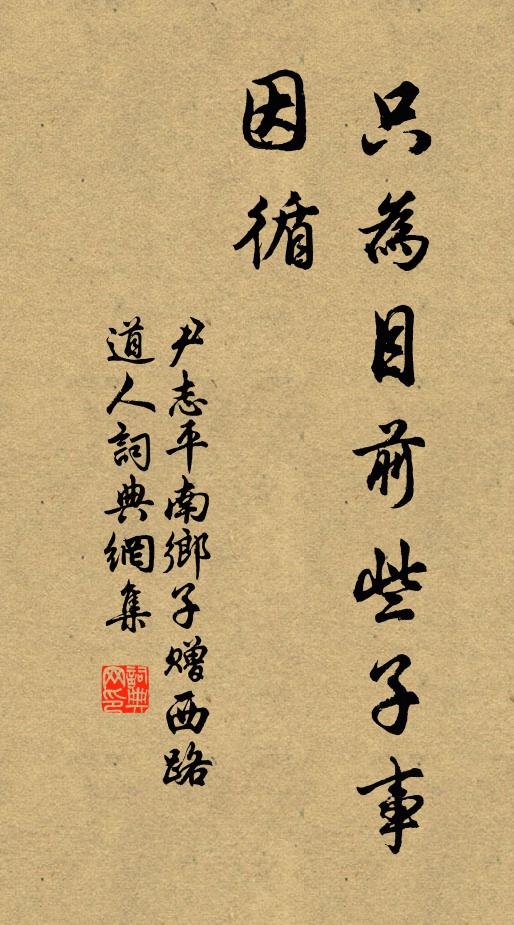 只為目前些子事
因循
尹志平南鄉子赠西路
道人詞典網集
詞典网印